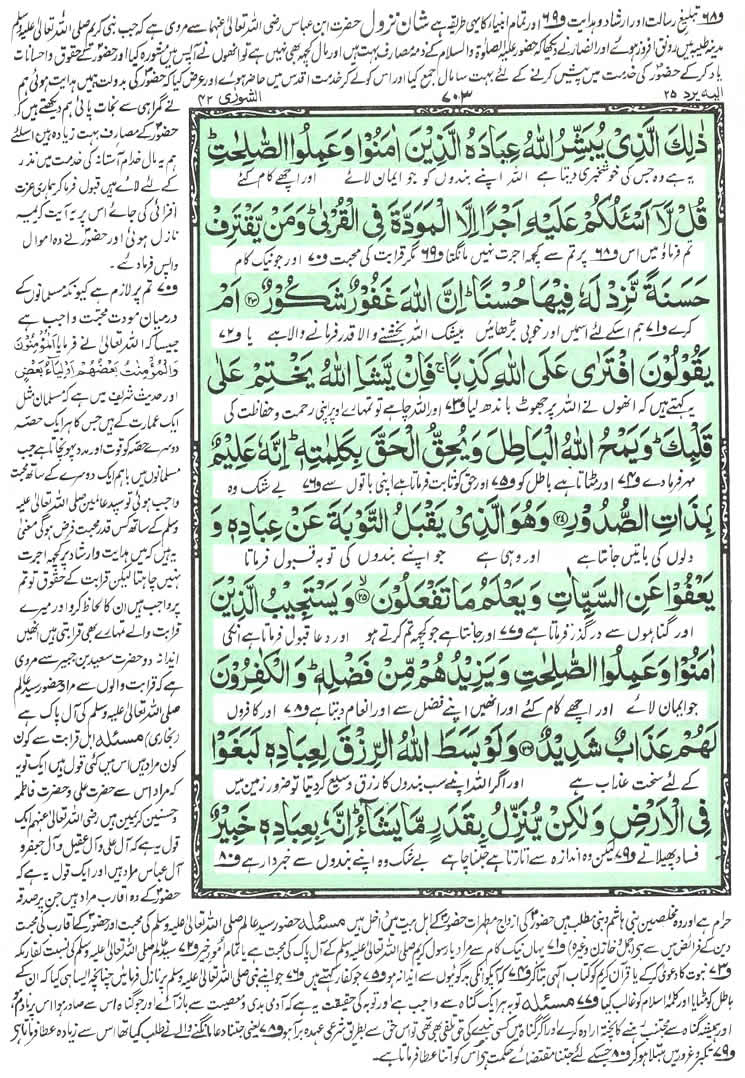 و۶۸ تبلیغ رسالت اور ارشاد و ہدایت و۶۹ اور تمام انبیاء کا یہی طریقہ ہے شان نزول حضرت ابن عباس رضی اللہ تعالیٰ عنہما سے مروی ہے کہ جب نبی کریم صلی اللہ تعالیٰ علیہ وسلم
مدینہ طیبہ میں رونق افروز ہوئے اور انصار نے دیکھا کہ حضور علیہ الصلوٰۃ والسلام کے ذمہ مصارف بہت ہیں اور مال کچھ بھی نہیں ہے تو انھوں نے آپس میں مشورہ کیا اور حضور کے حقوق و احسانات
یاد کرکے حضور کی خدمت میں پیش کرنے کے لئے بہت سا مال جمع کیا اور اس کو لے کر خدمت اقدس میں حاضر ہوئے اور عرض کیا کہ حضور کی بدولت ہمیں ہدایت ہوئی ہم
الیہ یرد ۲۵
۷۰۳
الشوریٰ ۴۲
ذٰلِكَ الَّذِیْ یُبَشِّرُ اللّٰهُ عِبَادَهُ الَّذِیْنَ اٰمَنُوْا وَعَمِلُوا الصّٰلِحٰتِ
یہ ہے وہ جس کی خوشخبری دیتا ہے اللہ اپنے بندوں کو جو ایمان لائے اور اچھے کام کئے
قُلْ لَّاۤ اَسْـَٔلُكُمْ عَلَیْهِ اَجْرًا اِلَّا الْمَوَدَّةَ فِی الْقُرْبٰی وَمَنْ یَّقْتَرِفْ
تم فرماؤ میں اس و۶۸ پر تم سے کچھ اجرت نہیں مانگتا و۶۹ مگر قرابت کی محبت و۷۰ اور جو نیک کام
حَسَنَةً نَّزِدْ لَهٗ فِیْهَا حُسْنًا اِنَّ اللّٰهَ غَفُوْرٌ شَكُوْرٌ ۲۳ اَمْ
کرے و۷۱ ہم اسکے لئے اسمیں اور خوبی بڑھائیں بیشک اللہ بخشنے والا قدر فرمانے والا ہے یا و۷۲
یَقُوْلُوْنَ افْتَرٰی عَلَی اللّٰهِ كَذِبًا فَاِنْ یَّشَاِ اللّٰهُ یَخْتِمْ عَلٰی
یہ کہتے ہیں کہ انھوں نے اللہ پر جھوٹ باندھ لیا و۷۳ اور اللہ چاہے تو تمہارے اوپر اپنی رحمت و حفاظت کی
قَلْبِكَ وَیَمْحُ اللّٰهُ الْبَاطِلَ وَیُحِقُّ الْحَقَّ بِكَلِمٰتِهٖ اِنَّهٗ عَلِیْمٌۢ
مہر فرما دے و۷۴ اور مٹاتا ہے باطل کو و۷۵ اور حق کو ثابت فرماتا ہے اپنی باتوں سے و۷۶ بے شک وہ
بِذَاتِ الصُّدُوْرِ ۲۴ وَهُوَ الَّذِیْ یَقْبَلُ التَّوْبَةَ عَنْ عِبَادِهٖ وَ
دلوں کی باتیں جانتا ہے اور وہی ہے جو اپنے بندوں کی توبہ قبول فرماتا
یَعْفُوْا عَنِ السَّیِّاٰتِ وَیَعْلَمُ مَا تَفْعَلُوْنَ ۲۵ وَیَسْتَجِیْبُ الَّذِیْنَ
اور گناہوں سے درگذر فرماتا ہے و۷۷ اور جانتا ہے جو کچھ تم کرتے ہو اور دعا قبول فرماتا ہے انکی
اٰمَنُوْا وَعَمِلُوا الصّٰلِحٰتِ وَیَزِیْدُهُمْ مِّنْ فَضْلِهٖ وَالْكٰفِرُوْنَ
جو ایمان لائے اور اچھے کام کئے اور انھیں اپنے فضل سے اور انعام دیتا ہے و۷۸ اور کافروں
لَهُمْ عَذَابٌ شَدِیْدٌ ۲۶ وَلَوْ بَسَطَ اللّٰهُ الرِّزْقَ لِعِبَادِهٖ لَبَغَوْا
کے لئے سخت عذاب ہے اور اگر اللہ اپنے سب بندوں کا رزق وسیع کردیتا تو ضرور زمین میں
فِی الْاَرْضِ وَلٰكِنْ یُّنَزِّلُ بِقَدَرٍ مَّا یَشَآءُ اِنَّهٗ بِعِبَادِهٖ خَبِیْرٌۢ
فساد پھیلاتے و۷۹ لیکن وہ اندازہ سے اتارتا ہے جتنا چاہے بے شک وہ اپنے بندوں سے خبردار ہے و۸۰
نے گمراہی سے نجات پائی ہم دیکھتے ہیں کہ
حضور کے مصارف بہت زیادہ ہیں اسلئے
ہم یہ مال خدام آستانہ کی خدمت میں نذر
کے لئے لائے ہیں قبول فرما کر ہماری عزت
افزائی کی جائے اس پر یہ آیت کریمہ
نازل ہوئی اور حضور نے وہ اموال
واپس فرما دئے۔
و۷۰ تم پر لازم ہے کیونکہ مسلمانوں کے
درمیان مودت محبت واجب ہے
جیسا کہ اللہ تعالیٰ نے فرمایا اَلْمُؤْمِنُوْنَ
وَالْمُؤْمِنٰتُ بَعْضُهُمْ اَوْلِیَآءُ بَعْضٍ
اور حدیث شریف میں ہے کہ مسلمان مثل
ایک عمارت کے ہیں جس کا ہر ایک حصہ
دوسرے حصہ کو قوت اور مدد پہونچاتا ہے جب
مسلمانوں میں باہم ایک دوسرے کے ساتھ محبت
واجب ہوئی تو سید عالمین صلی اللہ تعالیٰ علیہ
وسلم کے ساتھ کس قدر محبت فرض ہوگی معنیٰ
یہ ہیں کہ میں ہدایت و ارشاد پر کچھ اجرت
نہیں چاہتا لیکن قرابت کے حقوق تو تم
پر واجب ہیں ان کا لحاظ کرو اور میرے
قرابت والے تمہارے بھی قرابتی ہیں انھیں
ایذا نہ دو حضرت سعید بن جبیر سے مروی
ہے کہ قرابت والوں سے مراد حضور سید عالم
صلی اللہ تعالیٰ علیہ وسلم کی آل پاک ہے
(بخاری) مسئلہ اہل قرابت سے کون
کون مراد ہیں اس میں کئی قول ہیں ایک تو یہ
کہ مراد اس سے حضرت علی و حضرت فاطمہ
و حسنین کریمین ہیں رضی اللہ تعالیٰ عنہم ایک
قول یہ ہے کہ آل علی و آل عقیل و آل جعفر و
آل عباس مراد ہیں اور ایک قول یہ ہے کہ
حضور کے وہ اقارب مراد ہیں جن پر صدقہ
حرام ہے اور وہ مخلصین بنی ہاشم و بنی مطلب ہیں حضور کی ازواج مطہرات حضور کے اہل بیت میں داخل ہیں مسئلہ حضور سید عالم صلی اللہ تعالیٰ علیہ وسلم کی محبت اور حضور کے اقارب کی محبت
دین کے فرائض میں سے ہے (جمل و خازن وغیرہ) و۷۱ یہاں نیک کام سے مراد یا رسول کریم صلی اللہ تعالیٰ علیہ وسلم کے آل پاک کی محبت ہے یا تمام امور خیر و۷۲ سید عالم صلی اللہ تعالیٰ علیہ وسلم کی نسبت کفار مکہ
و۷۳ نبوت کا دعویٰ کرکے یا قرآن کریم کو کتاب الٰہی بتا کر و۷۴ کہ آپ کو انکی بدگوئیوں سے ایذا نہ ہو و۷۵ جو کفار کہتے ہیں و۷۶ جو اپنے نبی صلی اللہ تعالیٰ علیہ وسلم پر نازل فرمائیں چنانچہ ایسا ہی کیا کہ ان کے
باطل کو مٹایا اور کلمۂ اسلام کو غالب کیا و۷۷ مسئلہ توبہ ہر ایک گناہ سے واجب ہے اور توبہ کی حقیقت یہ ہے کہ آدمی بدی و معصیت سے باز آئے اور جو گناہ اس سے صادر ہوا اس پر نادم ہو
اور ہمیشہ گناہ سے مجتنب رہنے کا پختہ ارادہ کرے اور اگر گناہ میں کسی بندے کی حق تلفی بھی تھی تو اس حق سے بطریق شرعی عہدہ برآ ہو و۷۸ یعنی جتنا دعا مانگنے والے نے طلب کیا تھا اس سے زیادہ عطا فرماتا ہے
و۷۹ تکبر و غرور میں مبتلا ہو کر و۸۰ جسکے لئے جتنا مقتضائے حکمت ہے اس کو اتنا عطا فرماتا ہے۔